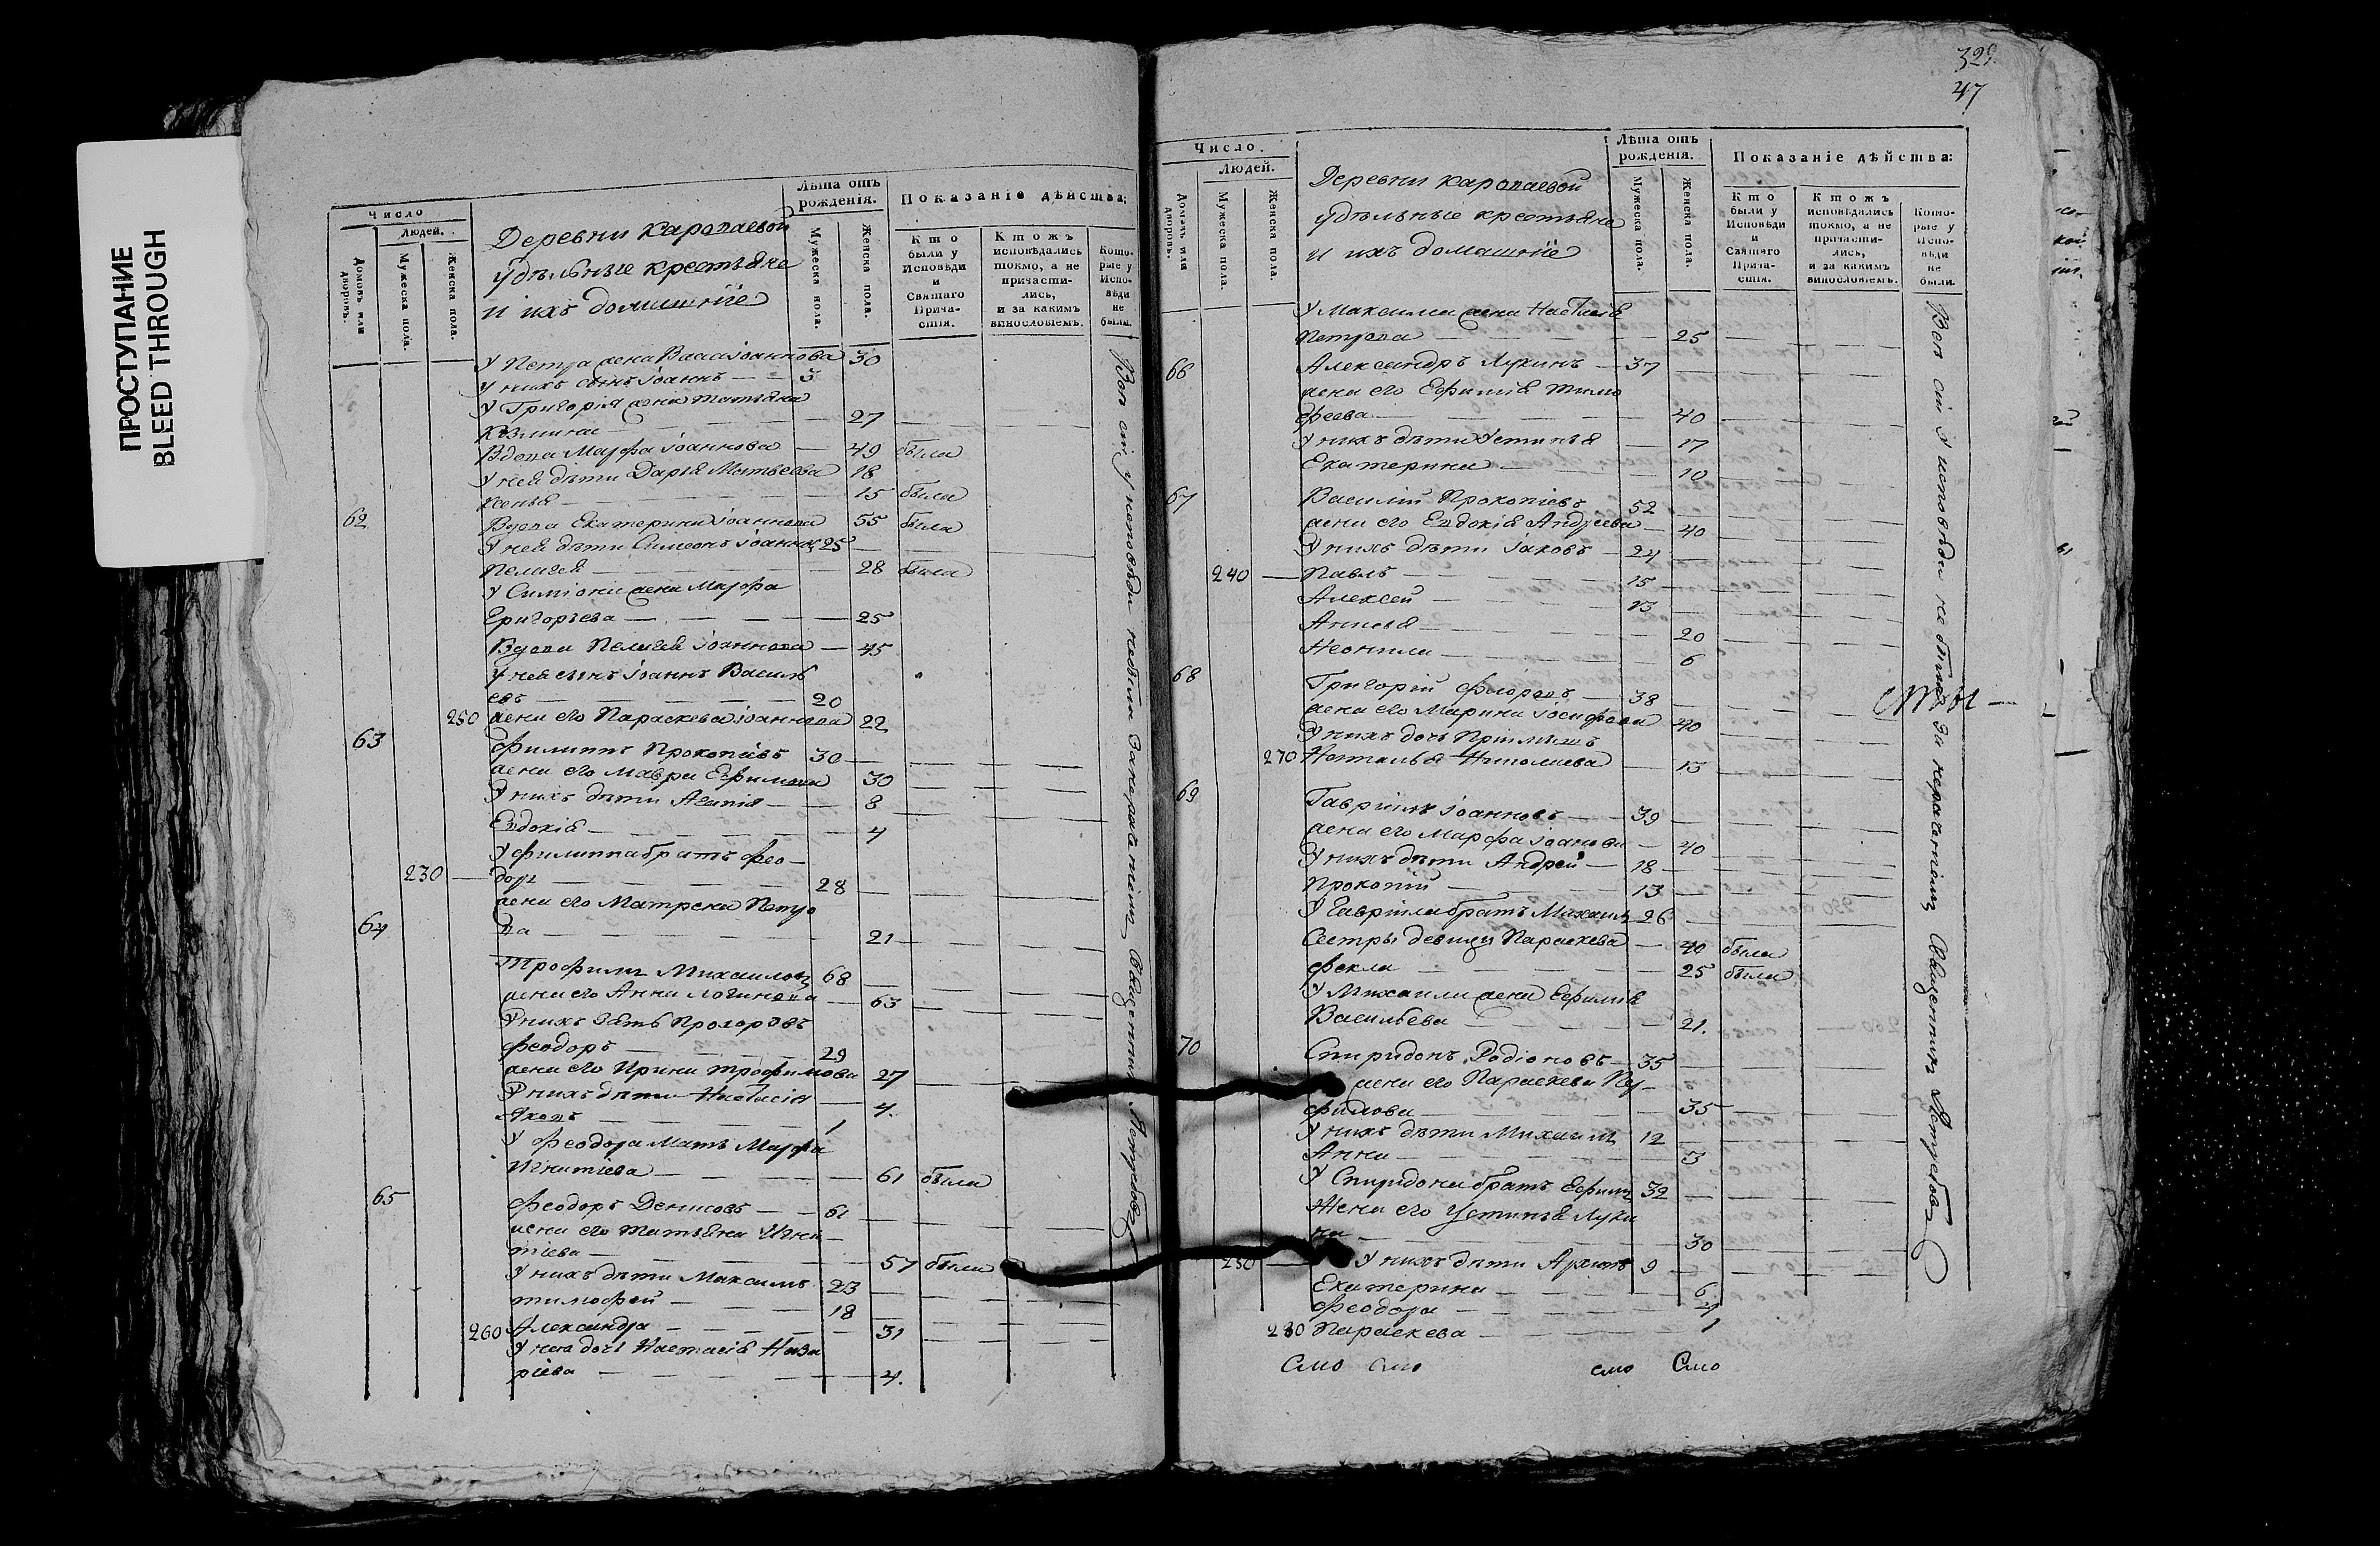 ПРОСТУПАНИЕ
BLEED THROUGH
Число
Людей.
Домовъ или дворовъ.
Мужеска пола.
Женска пола.
Деревни Каропаевой
удѣльные крестьяне
и ихъ домашнiе
Лѣта отъ рожденiя.
Мужеска пола.
Женска пола.
Показанiе дѣйства:
Кто были у Исповѣди и Святаго Причастiя.
Ктожъ исповѣдались токмо, а не причастились, и за какимъ винословiемъ.
Которые у Исповѣди не были.
У Петра жена Васса Iоаннова 30
У нихъ сынъ Iоаннъ 3
У Григорiя жена Татьяна
Козмина 27
Вдова Марфа Iоаннова 49 была
У ней дѣти Дарiя Матвеева 18
Ксенья 15 была
62 Вдова Екатерина Iоаннова 55 была
У ней дѣти Симеонъ Iоаннов 25
Пелагея 28 была
У Симiона жена Марфа
Григорьева 25
Вдова Пелагея Iоаннова 45
У ней сынъ Iоаннъ Василь
евъ 20
250 жена его Параскева Iоаннова 22
63 Филиппъ Прокопiевъ 30
жена его Мавра Ефимова 30
У нихъ дѣти Агапiя 8
Евдокiя 4
У Филиппа братъ Фео-
230 доръ 28
жена его Матрена Петро
ва 21
64 Трофимъ Михаиловъ 68
жена его Анна Логинова 63
У нихъ зять Прохоровъ
Феодоръ 29
жена его Ирина Трофимова 27
У нихъ дѣти Настасiя 4.
Яковъ 1
У Феодора мать Марфа
Игнатiева 61 была
65 Феодоръ Денисовъ 61
жена его Татьяна Игна-
тiева 57 была
У нихъ дѣти Максимъ 23
Тимофей 18
260 Александра 31
У нея дочь Настасiя Наза
рiева 4.
Всѣ сiи у исповѣди небыли за нераченiемъ Священникъ
329.
47
Число.
Людей.
Домовъ или дворовъ.
Мужеска пола.
Женска пола.
Деревни Каропаевой
удѣльные крестьяне
и ихъ домашнiе
Лѣта отъ рожденiя.
Мужеска пола.
Женска пола.
Показанiе дѣйства:
Кто были у Исповѣди и Святаго Причастiя.
Ктожъ исповѣдались токмо, а не причастились, и за какимъ винословiемъ.
Которые у Исповѣди не были.
У Максима жена Настасiя
Петрова 25
66 Александръ Лукинъ 37
жена его Ефимiя Тимо
феева 40
У нихъ дѣти Устинья 17
Екатерина 10
67 Василiй Прокопiевъ 52
жена его Евдокiя Андреева 40
У нихъ дѣти Iаковъ 24
240 Павлъ 15
Алексей 13
Анисья 20
Неонила 6
68 Григорiй Флоровъ 38
жена его Марина Iосифова 40
У нихъ дочь Прiимышъ
270 Наталья Николаева 13
69 Гаврiилъ Iоанновъ 39
жена его Марфа Iоанова 40
У нихъ дѣти Андрей 18
Прокопiй 13
У Гаврiила братъ Михаилъ 26
Сестры девицы Параскева 40 была
Фекла 25 была
У Михаила жена Ефимiя
Васильева 21.
70 Спиридонъ Родiоновъ 35
жена его Параскева Пер-
филова 35
У нихъ дѣти Михаилъ 12
Анна 3
У Спиридона братъ Ефимъ 32
Жена его Устинья Луки
на 30
250 У нихъ дѣти Архипъ 9
Екатерина 6
Феодора 4
280 Параскева 1
Всѣ сiи у исповѣди не были за нераченiемъ Священникъ